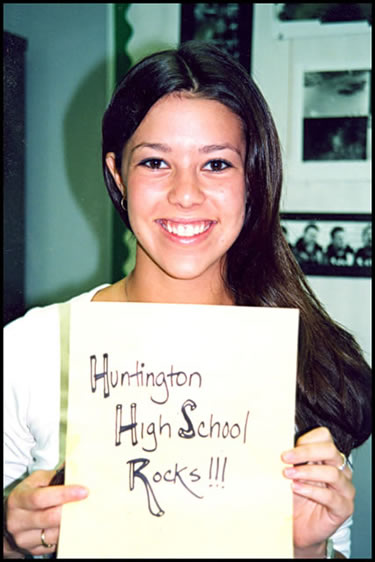 Huntington
High School
Rocks!!!